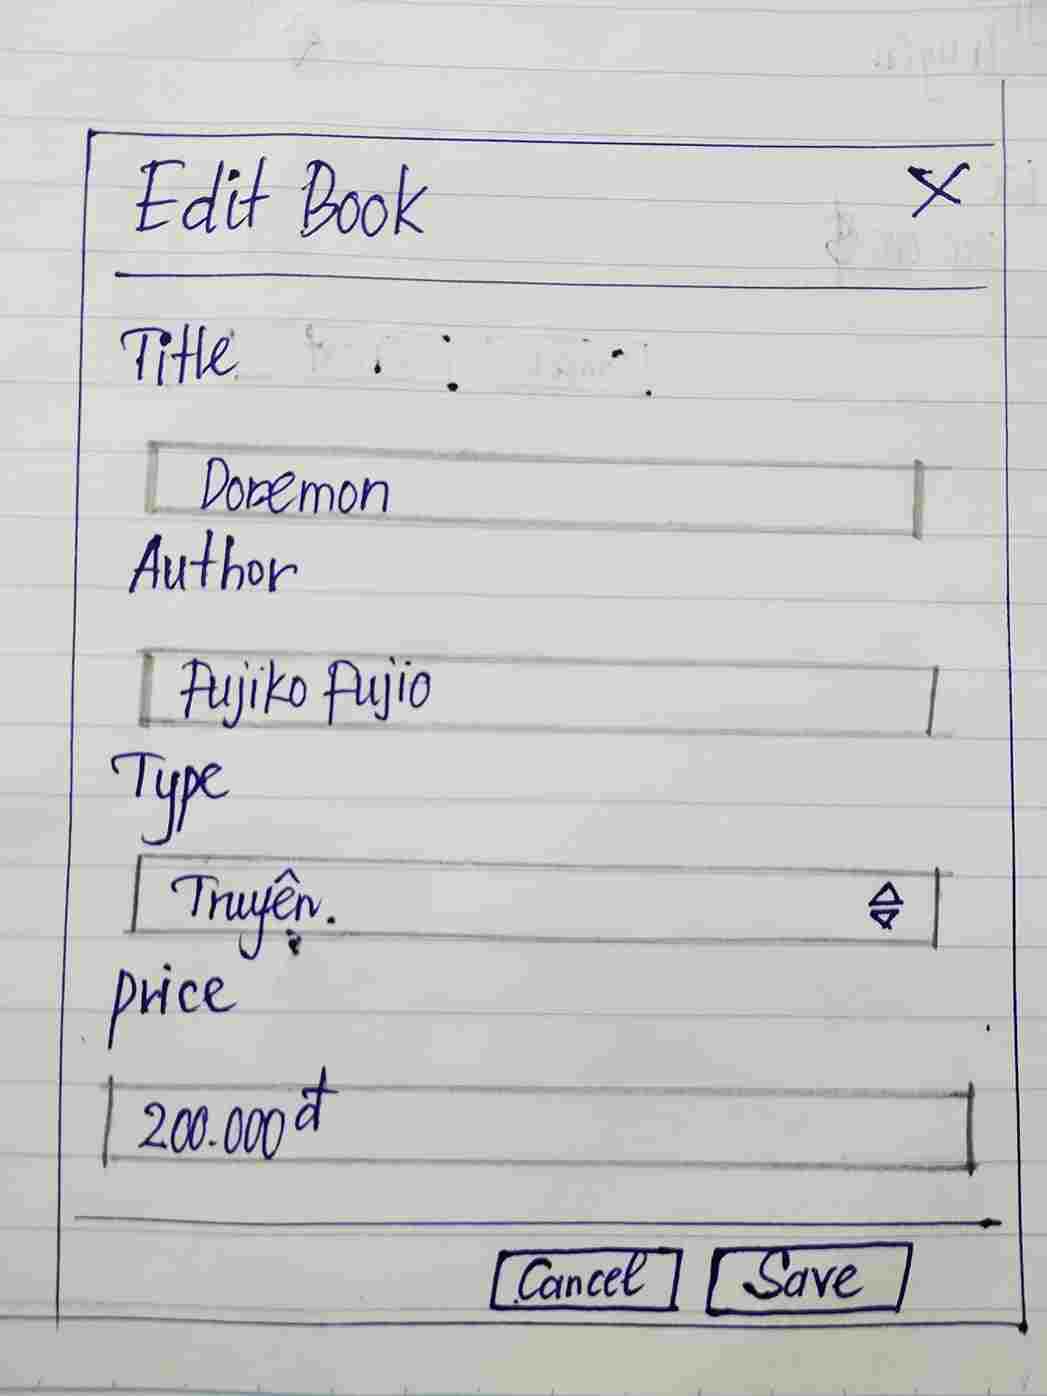 Edit Book X
Title
Doremon
Author
Fujiko Fujio
Type
Truyện.
price
200.000đ
Cancel Save